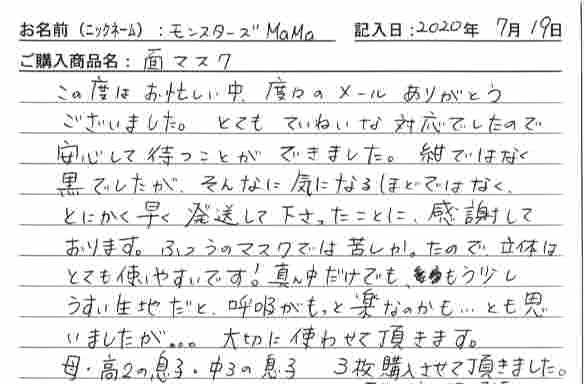 お名前（ニックネーム）：モンスターズMaMa　記入日：2020年 7月19日
ご購入商品名：面マスク
この度はお忙しい中、度々のメール ありがとう
ございました。とても ていねいな 対応でしたので
安心して待つことが できました。紺ではなく
黒でしたが、そんなに 気になるほどではなく、
とにかく早く 発送して下さったことに、感謝して
おります。ふつうのマスクでは苦しかったので、立体は
とても使いやすいです！真ん中だけでも、もう少し
うすい生地だと、呼吸がもっと楽なのかも…とも思
いましたが。。。 大切に使わせて頂きます。
母・高2の息子・中3の息子　3枚購入させて頂きました。